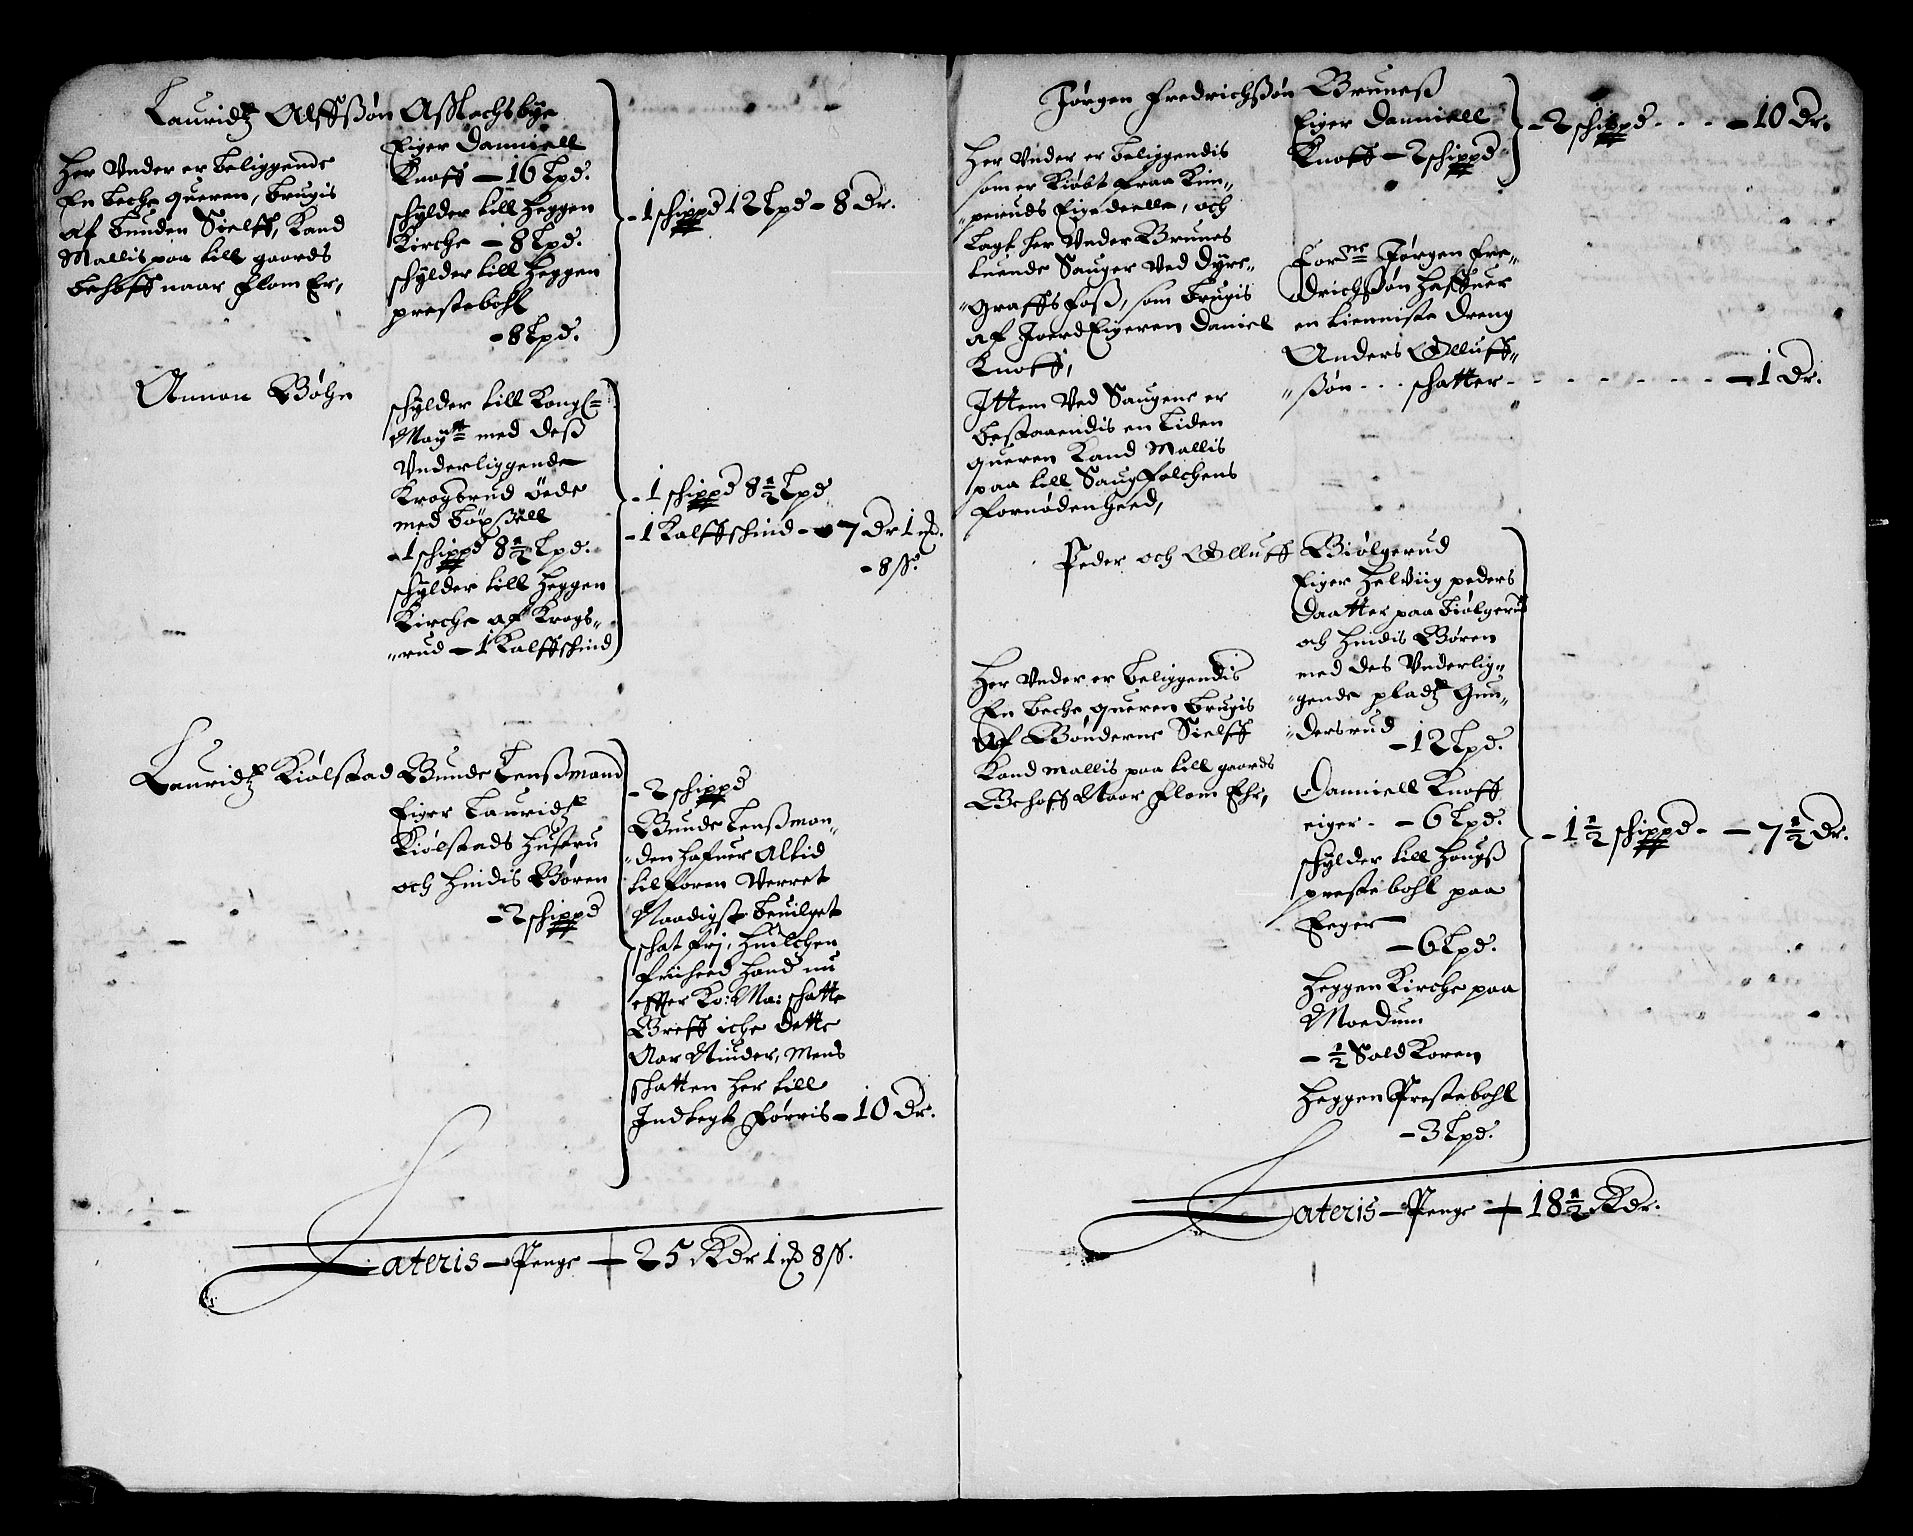 Lauridtz Alffsøn Asslachsbye
Her Vnder er beliggende
En beche queren, brugis
af bunden Sielff, Kand
Mallis paa till gaards
behoff naar flom Er,
Eiger Danniell
Knoff — 16 Lpd.
schylder till Heggen
Kirche — 8 Lpd.
schylder till Heggen
prestebohl
- 8 Lpd.
- 1 schippd 12 Lpd - 8 Dr.
Annon Bøhn
schylder till Kongl:
Maytt med deß
Vnderliggende
Krogsrud øde
med bøxßell
- 1 schippd 8½ Lpd.
schylder till Heggen
Kirche af Krogs-
"rud — 1 Kalffschind
- 1 schippd 8½ Lpd
- 1 Kalffschind - 7 Dr 1 mk
- 8 ß.
Lauridtz Kiølstad Bunde Lenßmand
Eiger Lauridtz
Kiølstads Hustru
och hindis Børen
- 2 schippd
- 2 schippd
Bunde Lenßman-
"den hafuer Altid
tilforen Verret
Naadigst beuilget
schat fri, huilchen
friheed hand nu
effter Ko: Ma: schatte
Breff iche dette
Aar Niuder, Mens
schatten her till
Indtegt føris - 10 Dr.
Lateris — Penge — 25 Rdr 1 mk 8 ß.
Jørgen Fredrichsøn Bruneß
Her Vnder er beliggendis
som er Kiøbt fraa Kim-
"peruds Eigedeelle, och
lagt her Vnder Brunes
tuende Sauger Ved Dyre-
"graffs foß, som brugis
af JordEigeren Daniel
Knoff,
Ittem Ved Saugene er
bestaaendis en liden
queren Kand Mallis
paa till Saugfolchens
fornødenheed,
Eiger Danniell
Knoff — 2 schippd
- 2 schippd - - - - 10 Dr.
Forne Jørgen Fre-
drichßøn haffuer
en tienniste Dreng
Anders Olluff-
"søn - - - schatter - - - - - - - 1 Dr.
Peder och Olluff Biølgerud
Her Vnder er beliggendis
En beche queren brugis
Af Bønderne Sielff
Kand mallis paa till gaards
Behoff Naar flom Ehr,
Eiger Helviig peders
Daatter paa biølgerud
och hindis Børen
med des Vnderlig-
"gende pladtz Gun-
"dersrud
- 12 Lpd.
Danniell Knoff
eiger - - 6 Lpd.
schylder till Hougß
prestebohl paa
Eeger
- 6 Lpd.
Heggen Kirche paa
Moedum
- ½ Sold Koren
Heggen Prestebohl
- 3 Lpd.
- 1½ schippd - - 7½ Dr.
Lateris — Penge — 18½ Rdr.